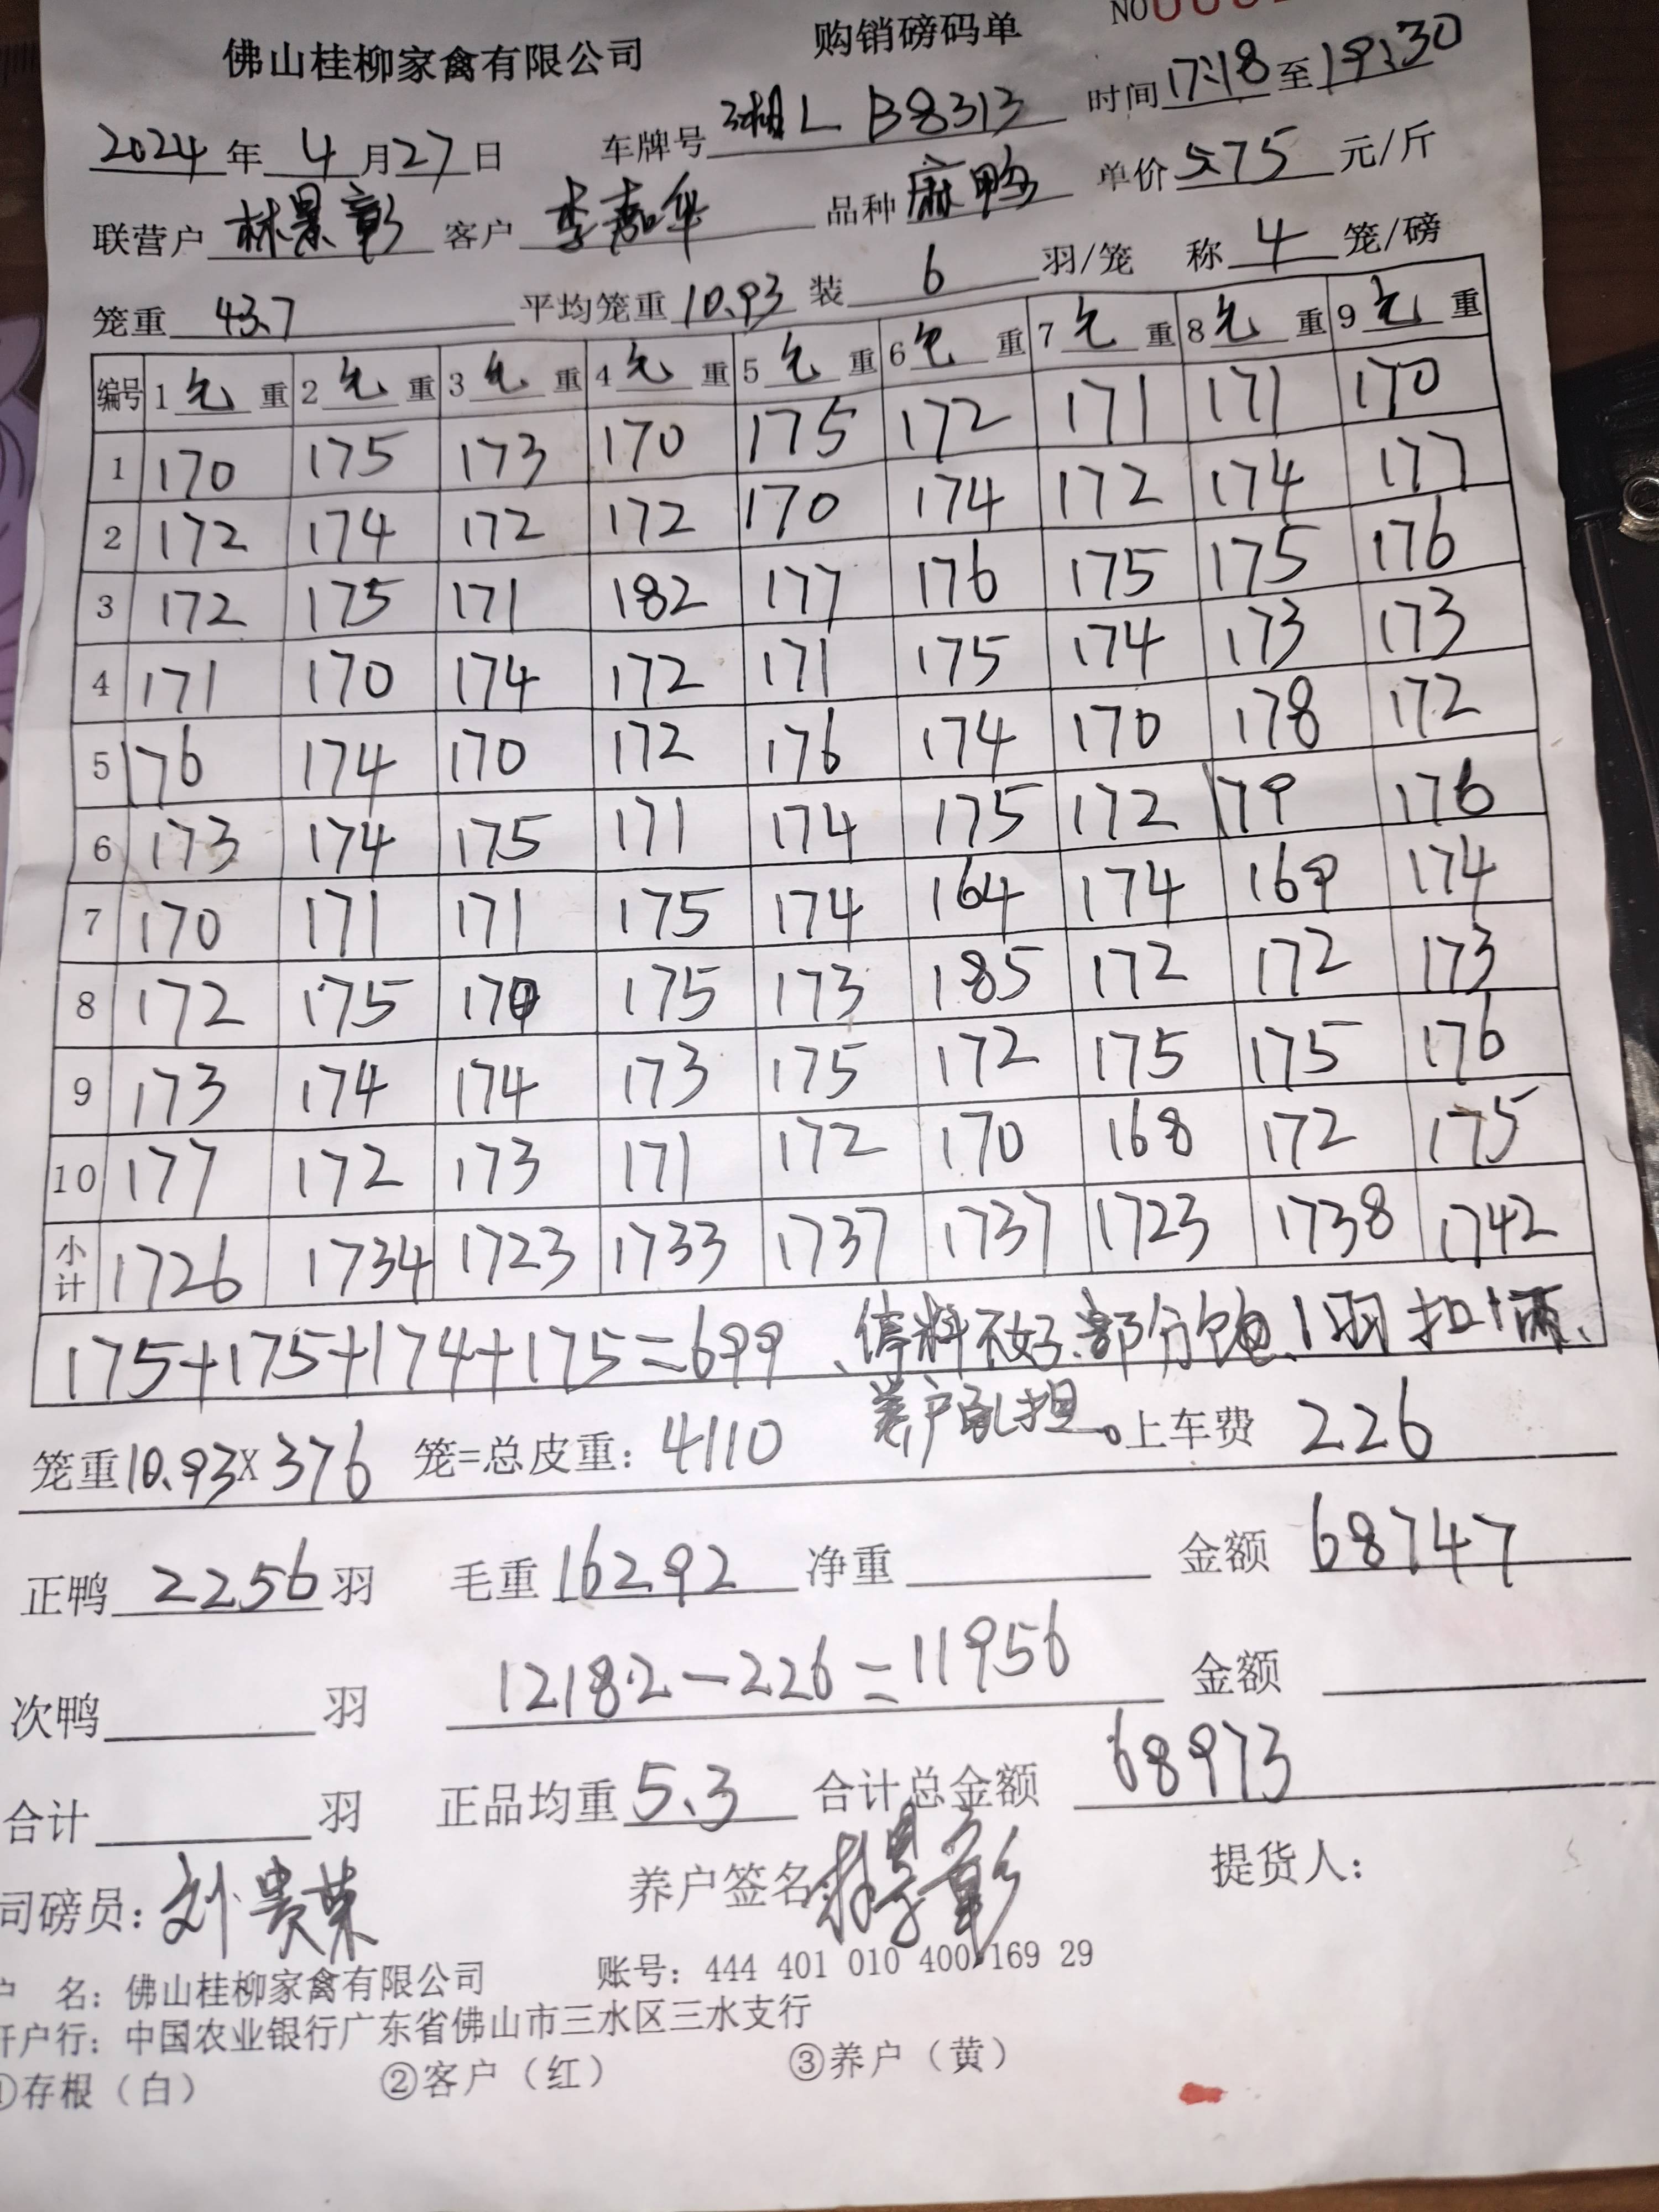 购销磅码单 NO
佛山桂柳家禽有限公司
2024年4月27日 车牌号 湘L B8313 时间17:18至19:30
联营户 林景彰 客户 李嘉华 品种 麻鸭 单价 5.75 元/斤
笼重 43.7 平均笼重 10.93 装 6 羽/笼 称 4 笼/磅
编号 1 毛 重 2 毛 重 3 毛 重 4 毛 重 5 毛 重 6 毛 重 7 毛 重 8 毛 重 9 毛 重
1 170 175 173 170 175 172 171 171 170
2 172 174 172 172 170 174 172 174 177
3 172 175 171 182 177 176 175 175 176
4 171 170 174 172 171 175 174 173 173
5 176 174 170 172 176 174 170 178 172
6 173 174 175 171 174 175 172 179 176
7 170 171 171 175 174 164 174 169 174
8 172 175 170 175 173 185 172 172 173
9 173 174 174 173 175 172 175 175 176
10 177 172 173 171 172 170 168 172 175
小计 1726 1734 1723 1733 1737 1737 1723 1738 1742
175+175+174+175=699、停料不好、部分饱、1羽扣1两、
养户承担。
笼重10.93X376 笼=总皮重：4110 上车费 226
正鸭 2256 羽 毛重 16292 净重 金额 68747
次鸭 羽 12182-226=11956 金额
合计 羽 正品均重 5.3 合计总金额 68973
司磅员：刘贵荣 养户签名 林景彰 提货人：
户 名：佛山桂柳家禽有限公司 账号：444 401 010 400 169 29
开户行：中国农业银行广东省佛山市三水区三水支行
①存根（白） ②客户（红） ③养户（黄）